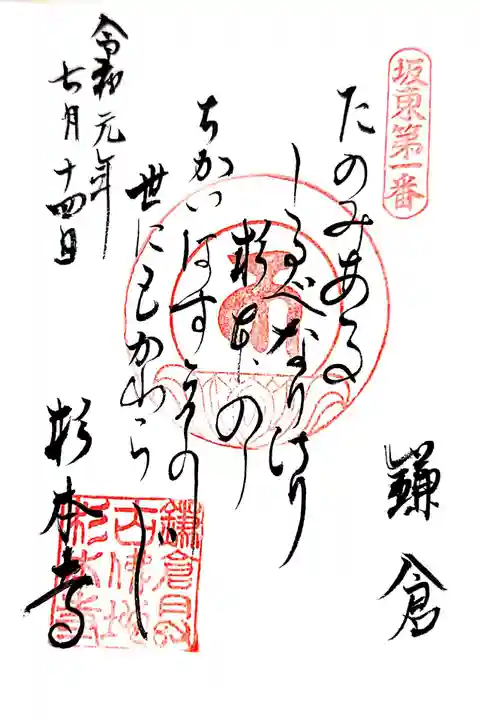 坂東第一番
鎌倉
たのみある
しるべなりけり
杉本の
ちかいはす
世にもかわらじ
杉本寺
令和元年
七月十四日